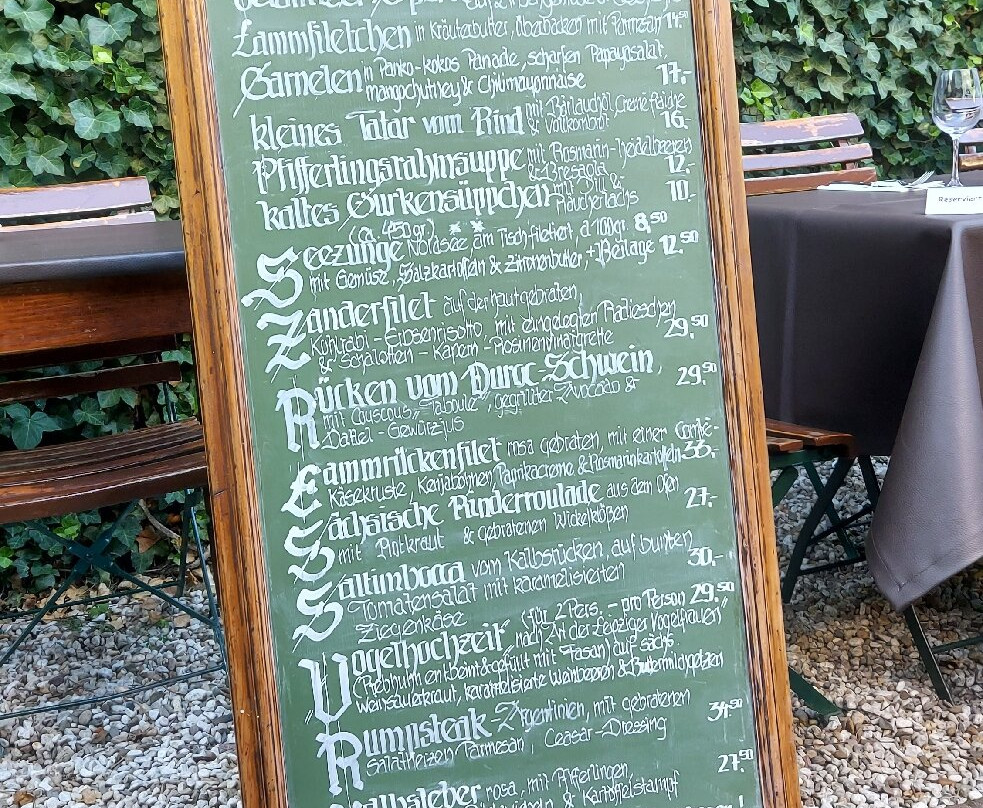 Lammfiletchen in Kräuterbutter, überbacken mit Parmesan 14,50
Garnelen in Panko-Kokos Panade, scharfen Papayasalat,
mangochutney & Chilimayonnaise 17,-
kleines Tatar vom Rind mit Bärlauchöl, Creme fraiche
& Vollkornbrot 16.-
Pfifferlingsrahmsuppe mit Rosmarin-Heidelbeeren
& Bresaola 12,-
kaltes Gurkensüppchen mit Dill &
Räucherlachs 10.-
(ca. 450gr.)
Seezunge Nordsee am Tisch filetiert, á 100gr. 8,50
mit Gemüse, Salzkartoffeln & Zitronenbutter, + Beilage 12,50
Zanderfilet auf der haut gebraten,
Kohlrabi - Erbsenrisotto, mit eingelegten Radieschen
& Schalotten - Kapern - Rosinenvinaigrette 29,50
Rücken vom Duroc-Schwein,
mit Couscous „Taboulé", gegrillter Avocado & 29,50
Dattel - Gewürzjus
Lammrückenfilet rosa gebraten, mit einer Comté-
Käsekruste, Keniabohnen, Paprikacreme & Rosmarinkartoffeln 33,-
Sächsische Rinderroulade aus dem Ofen
mit Rotkraut & gebratenen Wickelklößen 27,-
Saltimbocca vom Kalbsrücken, auf bunten
Tomatensalat mit karamelisierten 30,-
Ziegenkäse
(für 2 Pers. - pro Person 29,50
„Vogelhochzeit" „nach Art der Leipziger Vogelfrauen"
(Rebhuhn entbeint & gefüllt mit Fasan) auf sächs.
Weinsauerkraut, karamelisierte Weinbeeren &
Rumpsteak - Argentinien, mit gebratenen
Salatherzen - Parmesan, Ceasar-Dressing 34,50
Kalbsleber rosa, mit Pfifferlingen, 27,50
& Kartoffelstampf
Reserviert